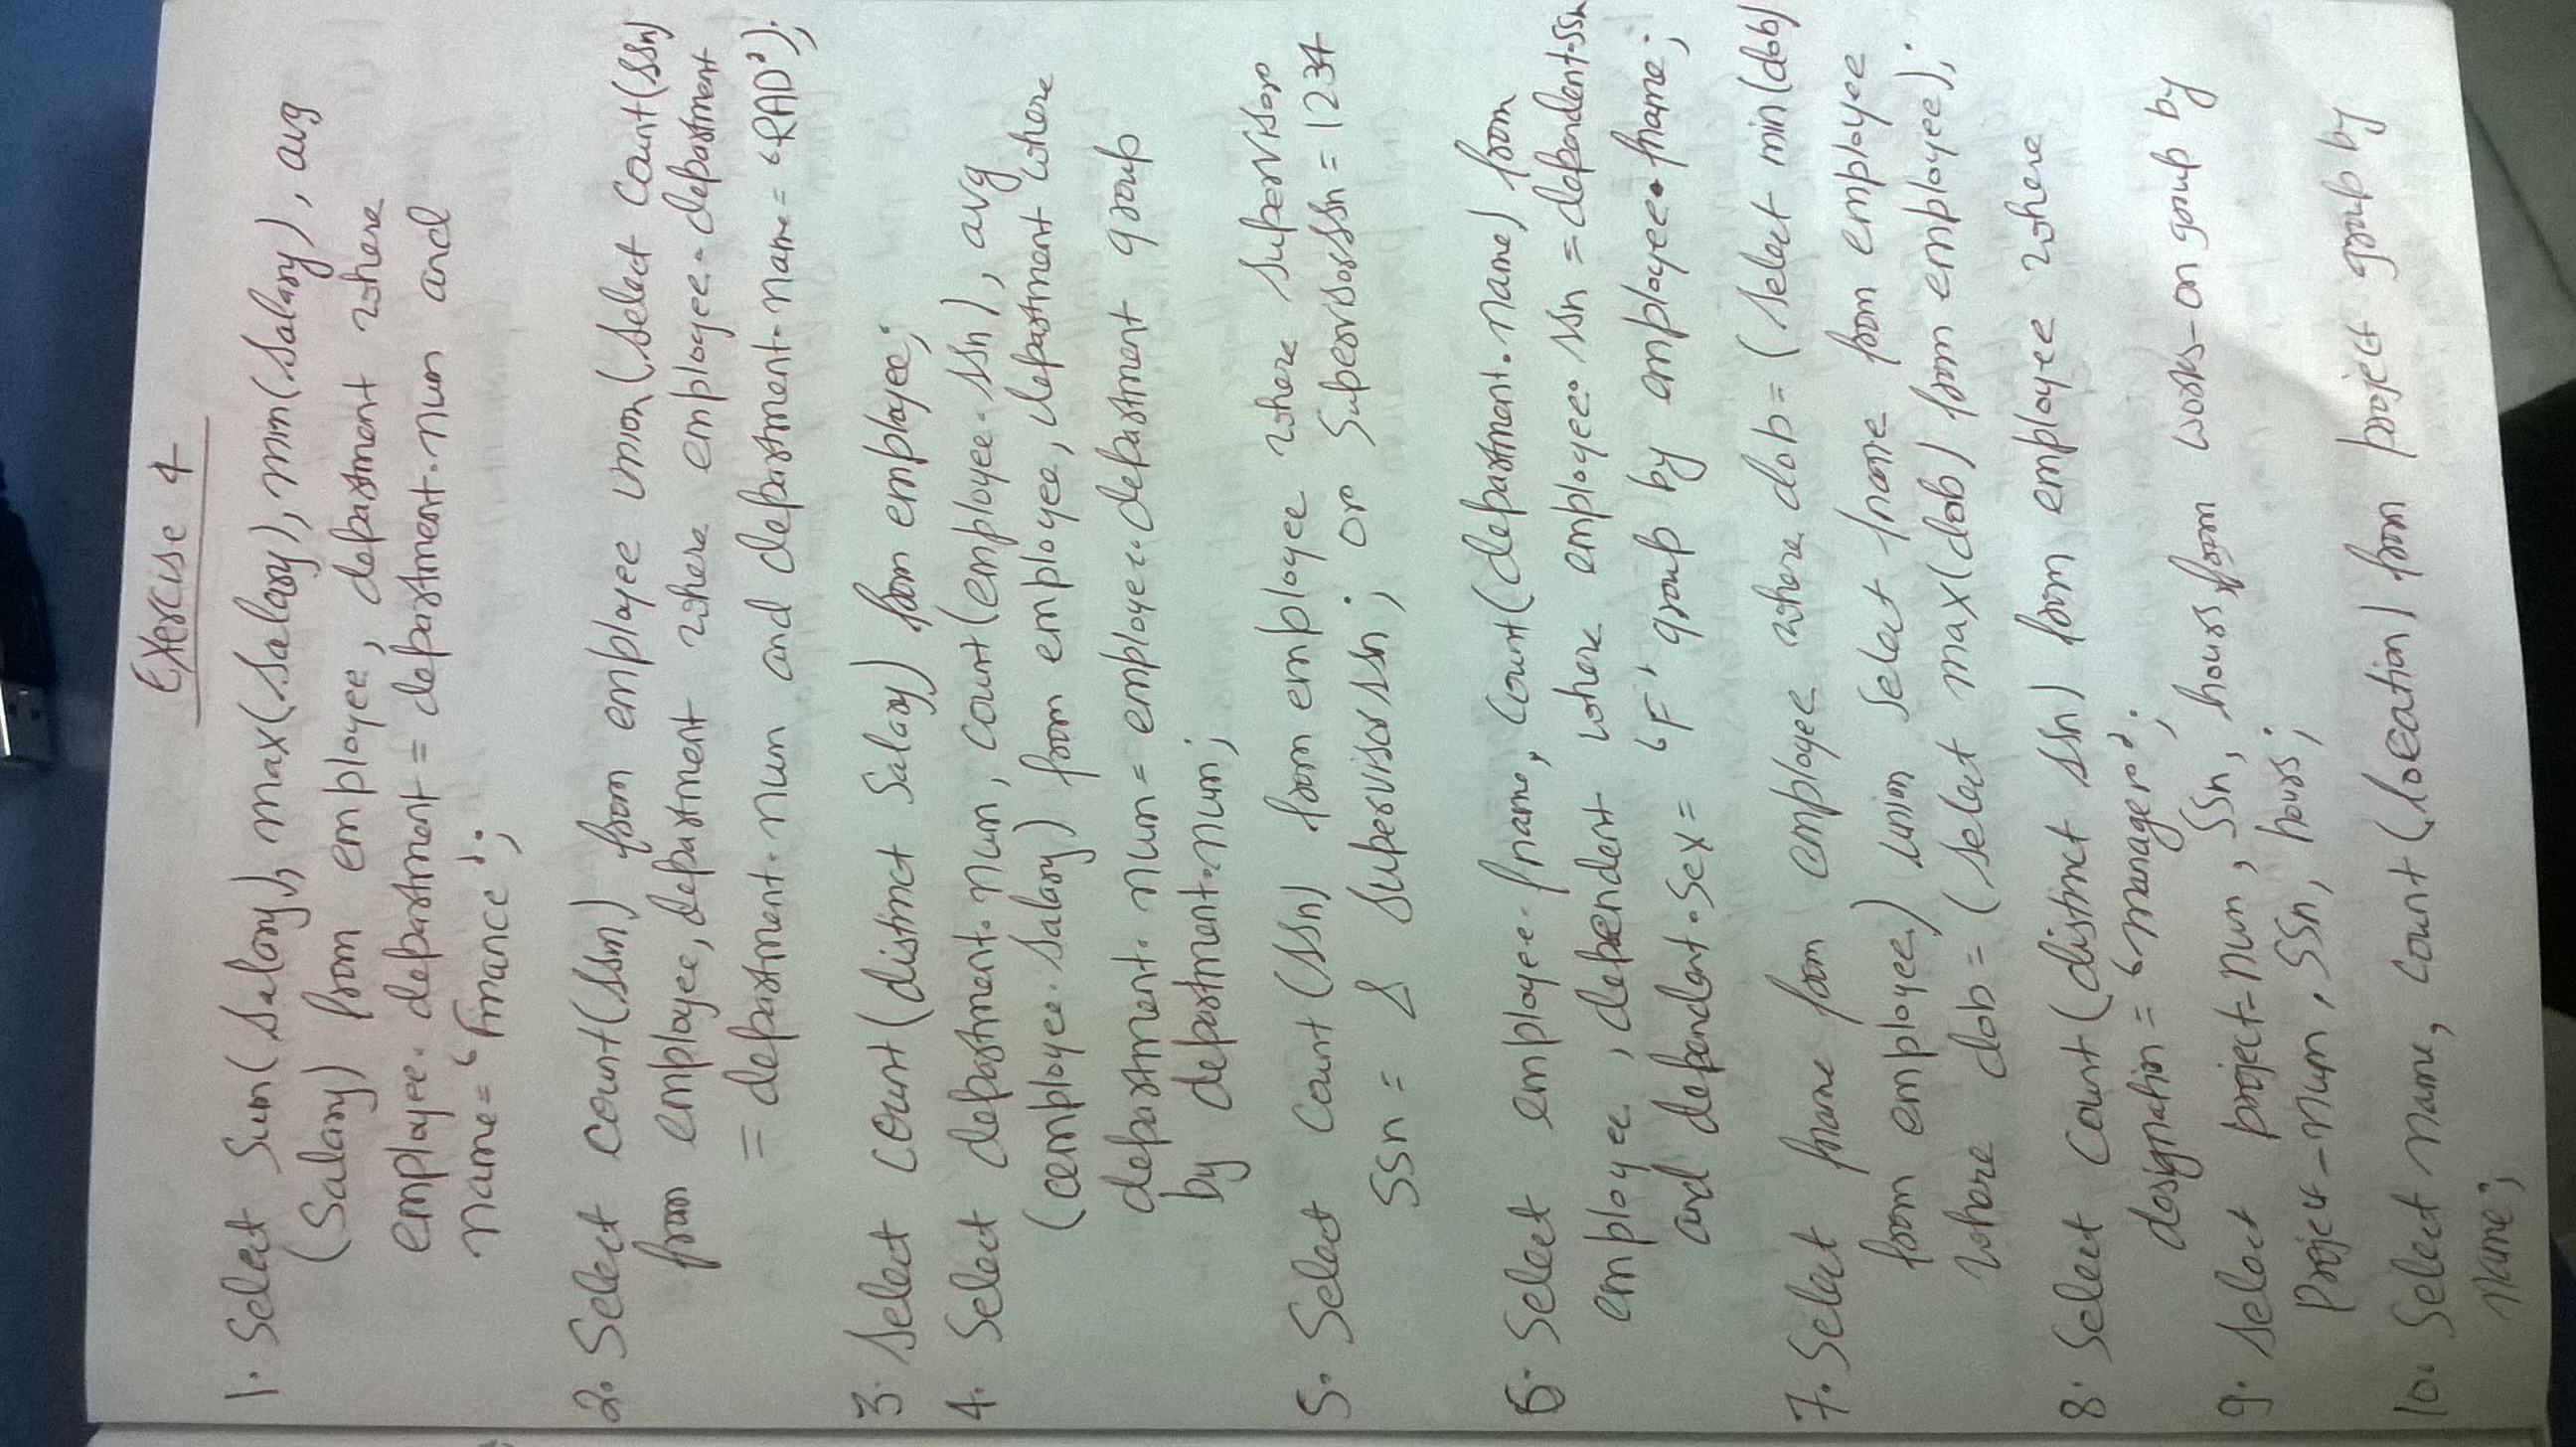 Exercise 4
1. Select Sum(Salary), max(Salary), min(Salary), avg
(Salary) from employee, department where
employee.department = department.num and
name= 'Finance';
2. Select count(ssn) from employee union(Select count(ssn)
from employee, department where employee.department
= department.num and department.name= 'RAD');
3. Select count(distinct Salary) from employee;
4. Select department.num, count(employee.ssn), avg
(employee.salary) from employee, department where
department.num = employee.department group
by department.num;
5. Select count(ssn) from employee where supervisor
ssn = & supervisorssn; or Supervisorssn=1234
6. Select employee.fname, count(department.name) from
employee, dependent where employee.ssn = dependent.ssn
and dependent.Sex= 'F' group by employee.fname;
7. Select fname from employee where dob=(select min(dob)
from employee) union Select fname from employee
where dob=(select max(dob) from employee);
8. Select count(distinct ssn) from employee where
designation = 'manager';
9. Select project-num, ssn, hours from works-on group by
Project-num, ssn, hours;
10. Select name, count(location) from project group by
name;